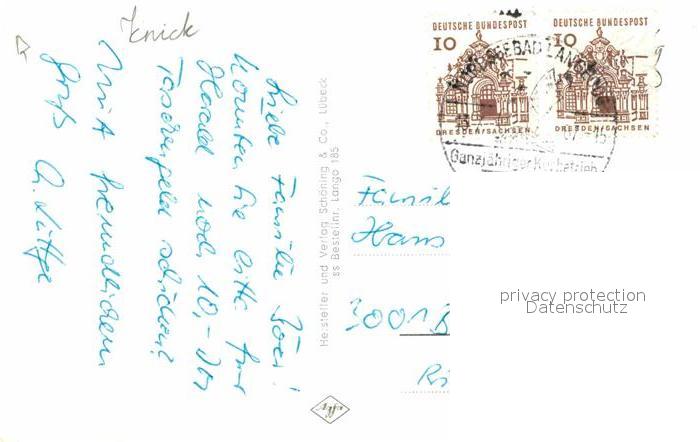 Knick
Liebe Familie
Könnten Sie bitte für
Harald noch 10,- DM
Taschengeld schicken?
Mit freundlichem
Gruß
Hersteller und Verlag Schöning & Co., Lübeck
ss Bestellnr. Lango 185
DEUTSCHE BUNDESPOST
10
DRESDEN/SACHSEN
DEUTSCHE BUNDESPOST
10
DRESDEN/SACHSEN
Ganzjähriger Kurbetrieb
Famil
Hans
3001
privacy protection
Datenschutz
Agfa